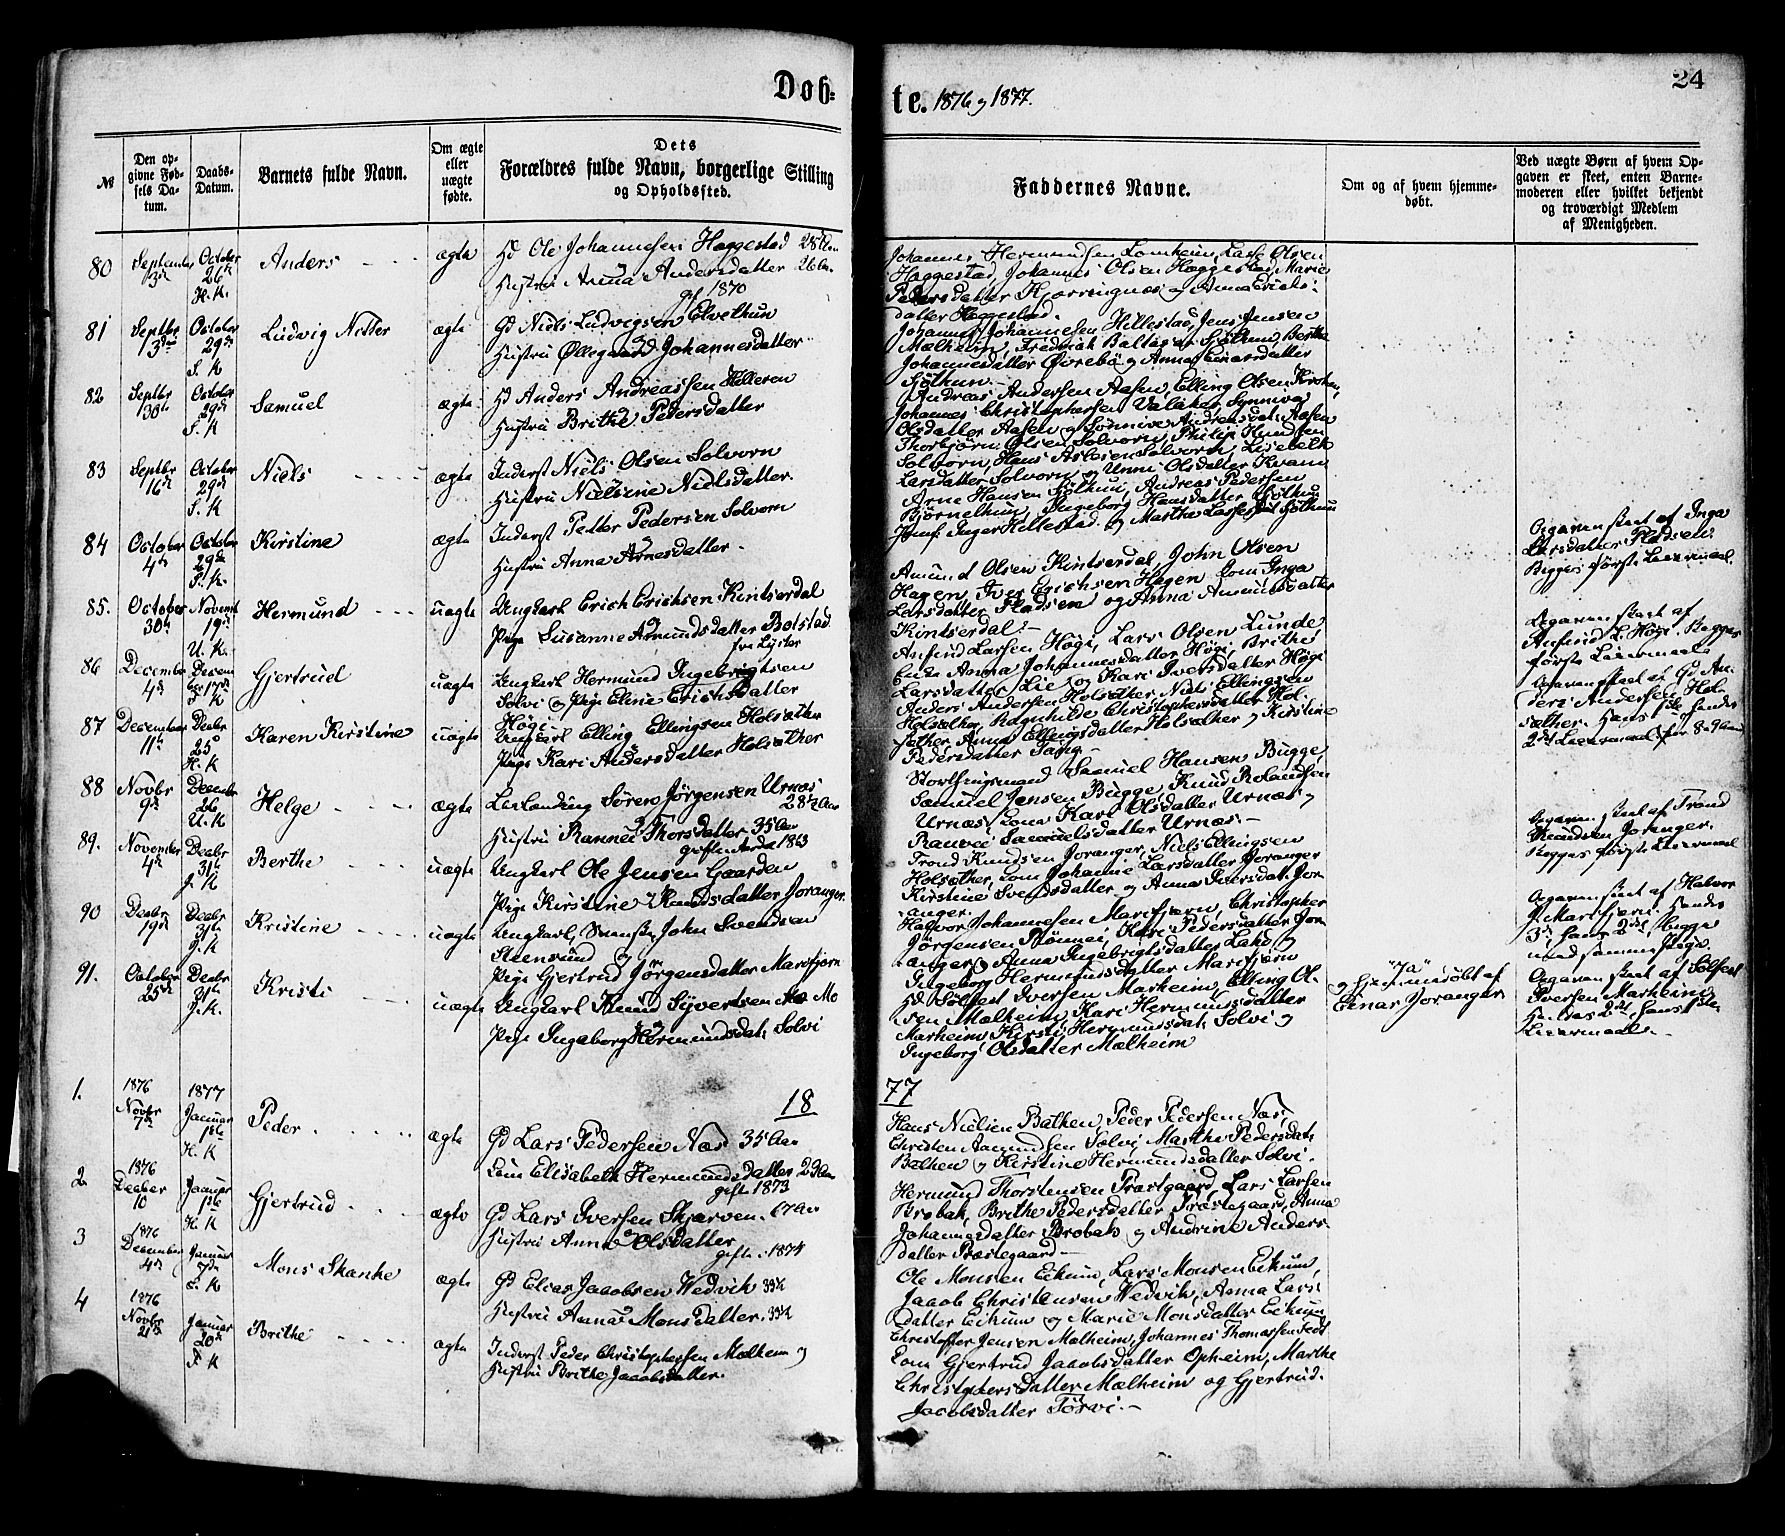 Døb-
te. 1876 og 1877.
24
№
Den op-
givne Fød-
sels Da-
tum.
Daabs-
Datum.
Barnets fulde Navn.
Om ægte
eller
uægte
fødte.
Dets
Forældres fulde Navn, borgerlige Stilling
og Opholdssted.
Faddernes Navne.
Om og af hvem hjemme-
døbt.
Ved uægte Børn af hvem Op-
gaven er skeet, enten Barne-
moderen eller hvilket bekjendt
og troværdigt Medlem
af Menigheden.
80
September
13de
October
26de
H. K.
Anders
ægte
Ole Johannesen Haggestad 28
Hustru Anna Andersdatter 26
gift 1870
Johannes Hermundsen Lomheim, Lars Olsen
Haggestad, Johannes Olsen Haggestad, Marie
Pedersdatter og Anna Erichs-
datter Haggestad.
81
Septbr
October
29de
S. K
Ludvig Nitter
ægte
Gd Niels Ludvigsen Elvethun
Hustru Øllegaard Johannesdatter
Johannes Johannesen Hillestad, Jens Jensen
Mælheim, Frederik Sjøthun, Berthe
Johannesdatter Øvrebø og Anna Einarsdatter
Sjøthun.
82
Septbr
30te
October
29de
S. K
Samuel
ægte
Anders Andreassen Hilleren
Hustru Brithe Pedersdatter
Andreas Andersen Aasen, Elling Olsen
Johannes Christophersen Valaker, Synneva
Olsdatter Aasen og Andreasdat. Aasen
83
Septbr
16de
October
29de
S. K
Niels
ægte
Inderst Niels Olsen Solvorn
Hustru Nielsine Nielsdatter.
Thorbjørn Olsen Solvorn, Philip
Solvorn, Hans Solvorn,
Larsdatter Solvorn og Unni Olsdatter Kvam
84
October
4de
October
29de
S. K.
Kirstine
ægte
Inderst Petter Pedersen Solvorn
Hustru Anna Arnesdatter.
Arne Hansen Sjøthun, Andreas Pedersen
Bjørnethun, Ingeborg Hansdatter Sjøthun
Jomf. Inger Hillestad og Martha Sjøthun
85.
October
30te
Novemb
19de
U. K.
Hermund
uægte
Ungkarl Erich Erichsen Kintserdal
Pige Susanne Amundsdatter Bolstad
fra Lyster
Amund Olsen Kintserdal, John Olsen
Hagen, Iver Erichsen Hagen, Inga
Larsdatter Pladsen og Anna Amundsdatter
Kintserdal.
Opgaven skeet af Inga
Larsdatter Pladsen.
Begges første Leiermaal.
86
December
4de
Decem
ber 17de
S K
Gjertrud
uægte
Ungkarl Hermund Ingebrigtsen
Solvi og Pige Eline Erichsdatter
Høgi
Anfind Larsen Høgi, Lars Olsen Lunde
Enke Anna Johannesdatter Høgi, Brithe
Larsdatter Lie og Kari Iversdatter Høgi
Opgaven skeet af
Anfind L. Høgi. Begges
første Leiermaal.
87
December
11te
Decbr
25de
H. K
Karen Kirstine
uægte
Ungkarl Elling Ellingsen Holsæther
Pige Kari Andersdatter Holsæther
Anders Andersen Holsæther, Niels Ellingsen
Holsæther, Ragnhilde Christophersdatter Hol-
sæther, Anna Ellingsdatter Holsæther og Kirstine
Pedersdatter
Opgaven skeet af Gd An-
ders Andersen Hol-
sæther. Hans 1ste hendes
2det Leiermaal for 8-9
88
Novbr
9de
Decembr
26
U. K
Helge
ægte
Søren Jørgensen Urnæs
28½ Aar
Hustru Rannei Thorsdatter 35 Aar
gifte 1863
Storthingsmand Samuel Hansen Bugge,
Samuel Jensen Bugge, Knud Rolandsen
Urnæs, Kari Olsdatter Urnæs og
Ranvei Samuelsdatter Urnæs.
89.
November
4de
Decbr
31te
J. K
Berthe
uægte
Ungkarl Ole Jensen Gaarden
Pige Kirstine Knudsdatter Joranger.
Trond Knudsen Joranger, Niels Ellingsen
Holsæther, Johanne Larsdatter Joranger
Kirstine Svendsdatter og Anna Iversdat. Jor-
anger.
Opgaven skeet af Trond
Knudsen Joranger.
Begges første Leiermaal
90
Decbr
19de
Decbr
31te
J. K
Kirstine
uægte
Ungkarl, John Svendsen
Steensund og
Pige Gjertrud Jørgensdatter Marifjøren
Halvor Johannesen Marifjøren, Christopher
Jørgensen Rønnei, Kari Pedersdatter Jor-
anger, Anna Ingebrigtsdatter og
Ingeborg Hermundsdatter Marifjøren
Opgaven skeet af Halvor
J. Marifjøren. Hendes
3de, hans 2det, begge
med samme Pige.
91.
October
25de
Decbr
31te
J. K.
Kristi
uægte
Ungkarl Knud Sjvertsen Mo
Pige Ingeborg Hermundsdat. Solvi
Solfest Iversen Marheim, Elling Ol-
sen Mælheim, Kari Hermundsdatter
Marheim, Kirsti Hermundsdat. Solvi og
Ingeborg Olsdatter Mælheim
"Ja"
Einar Joranger
Opgaven skeet af Solfest
Iversen Marheim
Hendes 2det, hans 1ste
Leiermaal.
18
77
1.
1876
Novbr
7de
1877
Januar
1ste
H. K
Peder
ægte
Gd Lars Pedersen Næs 35 Aar
Elisabeth Hermundsdatter 23
gifte 1873
Hans Nielsen Bathen, Peder Pedersen Næs,
Christen Aamundsen Solvi, Marthe Pedersdat.
Bathen og Kirstine Hermundsdatter Solvi.
2
1876
Decbr
10
Januar
1ste
H K
Gjertrud
ægte
Gd Lars Iversen Skjerven
Hustru Anna Olsdatter
gifte 1874
Hermund Thorstensen Præstgaard, Lars Larsen
Brobak, Brithe Pedersdatter Præstegaard, Anna
Johannesdatter Brobak og Andrine Anders-
datter Præstegaard
3
1876
December
4de
Januar
7de
S. K
Mons Skanke
ægte
Gd Elias Jacobsen Wedvik
Hustru Anna Monsdatter.
Ole Monsen Eikum, Lars Monsen Eikum,
Jacob Christensen Wedvik, Anna Lars-
datter Eikum og Marie Monsdatter Eikum
4
1876
Novbr
21de
Januar
20de
F. K
Brithe
ægte
Inderst Peder Christophersen Mælheim og
Hustru Brithe Jacobsdatter.
Christoffer Jensen Mælheim, Johannes Thomassen
Gjertrud Jacobsdatter Opheim, Marthe
Christophersdatter Mælheim og Gjertrud
Jacobsdatter Tørvi.